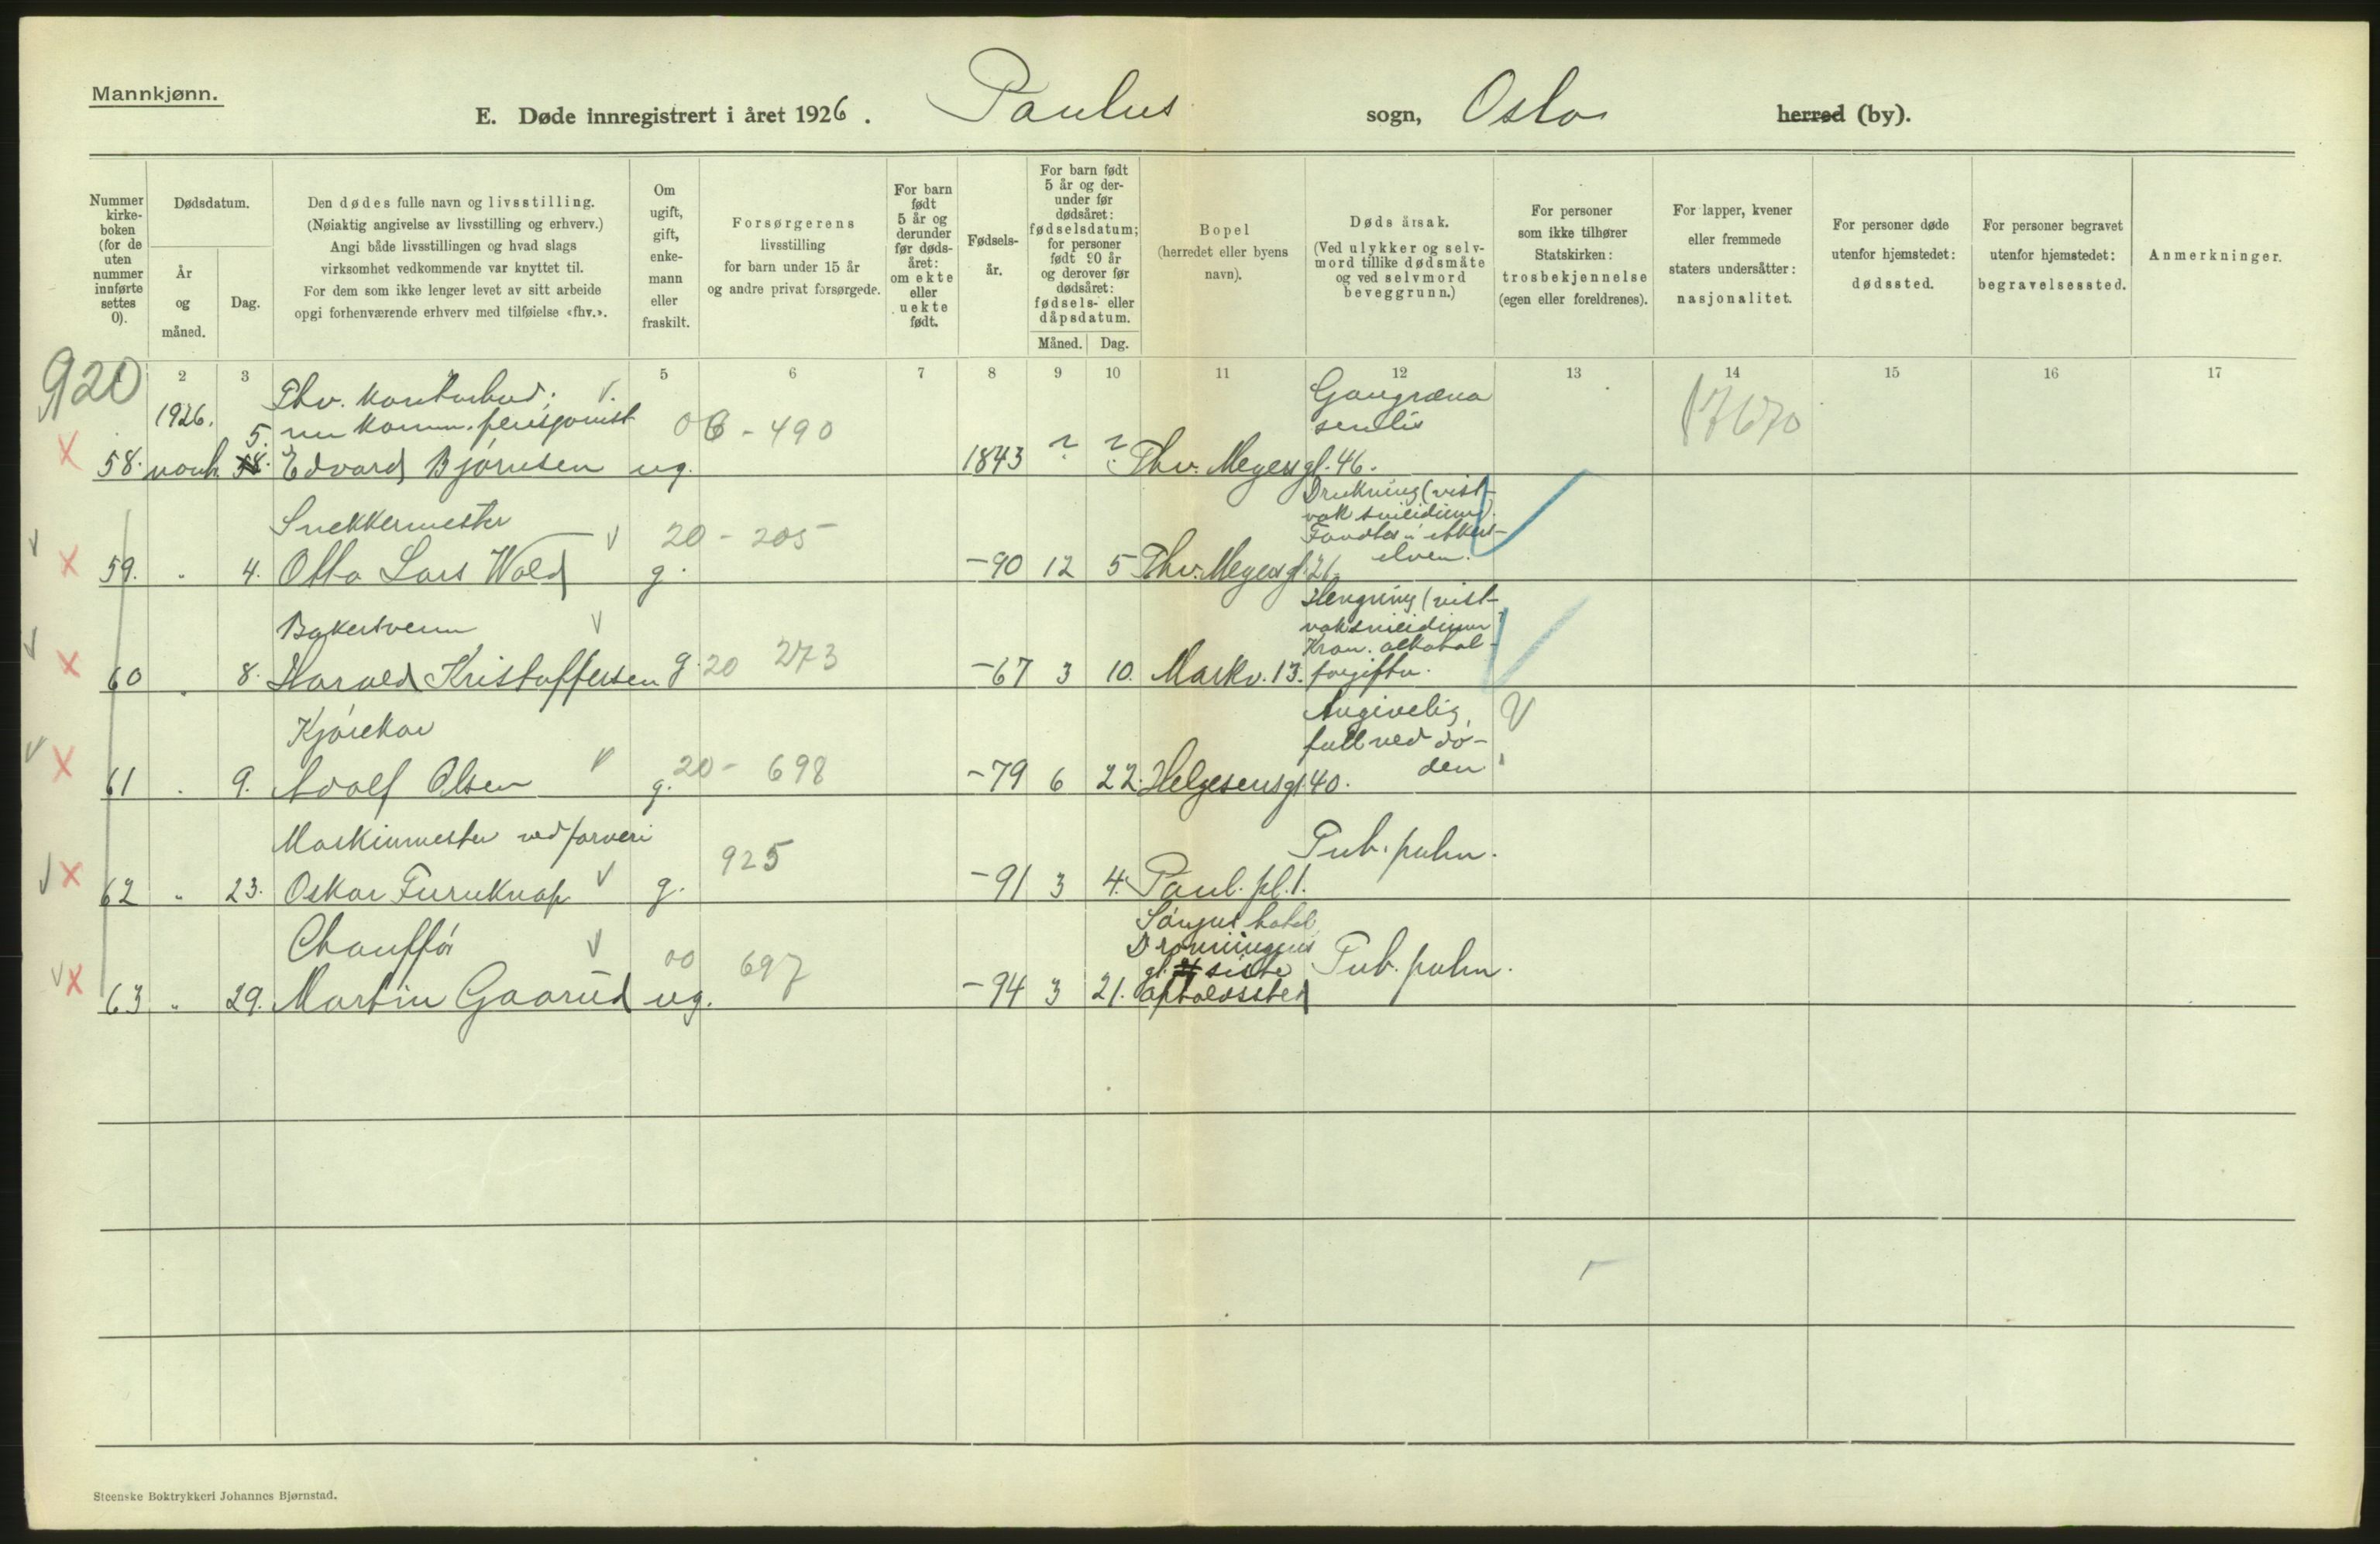 Mannkjønn.
E. Døde innregistrert i året 1926. Paulus sogn, Oslo herred (by).
Nummer kirke- boken (for de uten nummer innførte settes 0).
Dødsdatum.
År og måned.
Dag.
Den dødes fulle navn og livsstilling.
(Nøiaktig angivelse av livsstilling og erhverv.)
Angi både livsstillingen og hvad slags
virksomhet vedkommende var knyttet til.
For dem som ikke lenger levet av sitt arbeide
opgi forhenværende erhverv med tilføielse «fhv.».
Om ugift, gift, enke- mann eller fraskilt.
Forsørgerens
livsstilling
for barn under 15 år
og andre privat forsørgede.
For barn født 5 år og derunder før døds- året: om ekte eller uekte født.
Fødsels- år.
For barn født 5 år og der- under før dødsåret: fødselsdatum; for personer født 90 år og derover før dødsåret: fødsels- eller dåpsdatum.
Måned. Dag.
Bopel
(herredet eller byens
navn).
Døds årsak.
(Ved ulykker og selv-
mord tillike dødsmåte
og ved selvmord
beveggrunn.)
For personer
som ikke tilhører
Statskirken:
trosbekjennelse
(egen eller foreldrenes).
For lapper, kvener
eller fremmede
staters undersåtter:
nasjonalitet.
For personer døde
utenfor hjemstedet:
dødssted.
For personer begravet
utenfor hjemstedet:
begravelsessted.
Anmerkninger.
920 2 3 5 6 7 8 9 10 11 12 13 14 15 16 17
1926. Fhv. kontorbud; Gangræna
5. nu komm. pensjonist 06 - 490 senilis 17670
58. novb. 58. Edvard Bjørnsen ug. 1843 ? ? Thv. Meyers gt. 46.
Snekkermester 20 - 205 Drukning (vist-
nok suicidium).
Fandtes i Akers-
59. " 4. Otto Lars Wold g. -90 12 5 Thv. Meyers gt. 21. elven.
Bakersvenn Hengning (vist-
nok suicidium
Kron. alkohol-
60 " 8. Harald Kristoffersen g. 20 273 -67 3 10. Markv. 13. forgiftn.
Kjørekar Angivelig
full ved dø-
61 " 9. Adolf Olsen g. 20 - 698 -79 6 22. Helgesens gt. 40. den
Maskinmester ved farveri 925 Tub. pulm.
62 " 23. Oskar Furuknap g. -91 3 4. Paul. pl. 1.
Chauffør 00 697 hotel,
Dronningens
gt. siste Tub. pulm.
63 " 29. Martin Gaarud ug. -94 3 21. opholdssted
Steenske Boktrykkeri Johannes Bjørnstad.